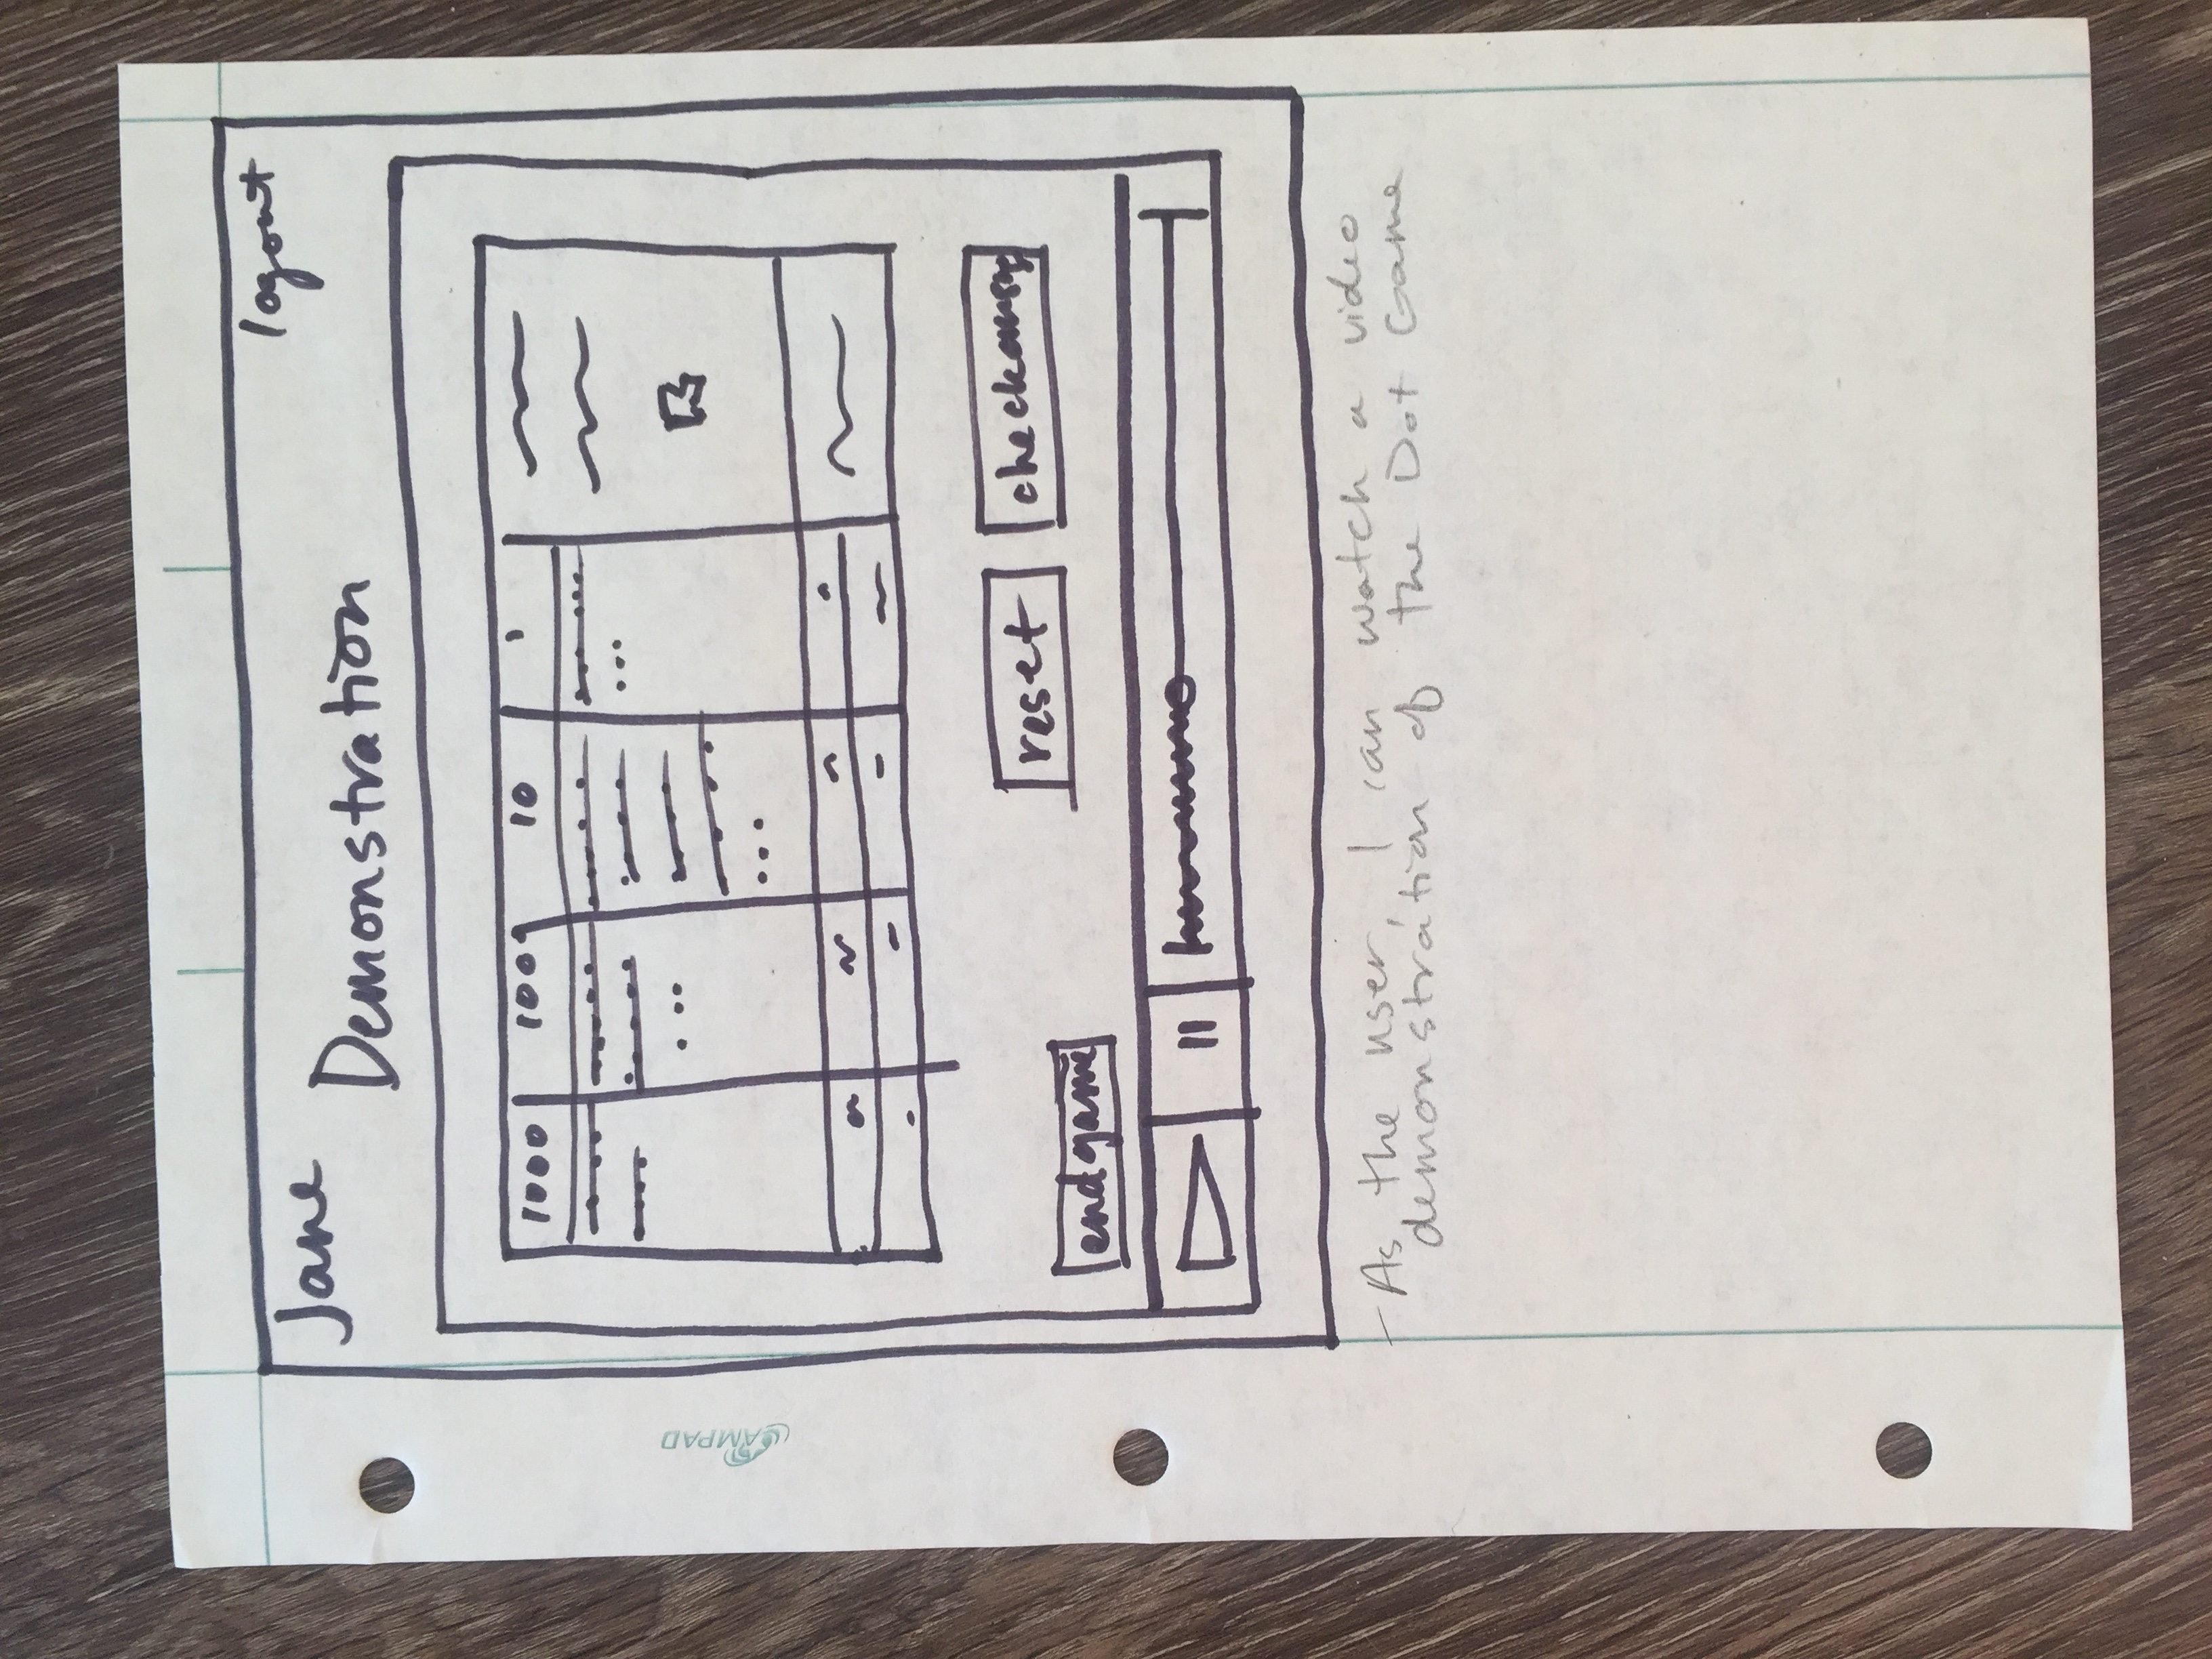 Jane
logout
Demonstration
1000 100 10 1
reset
check answer
end game
- As the user, I can watch a video
demonstration of the Dot Game
AMPAD